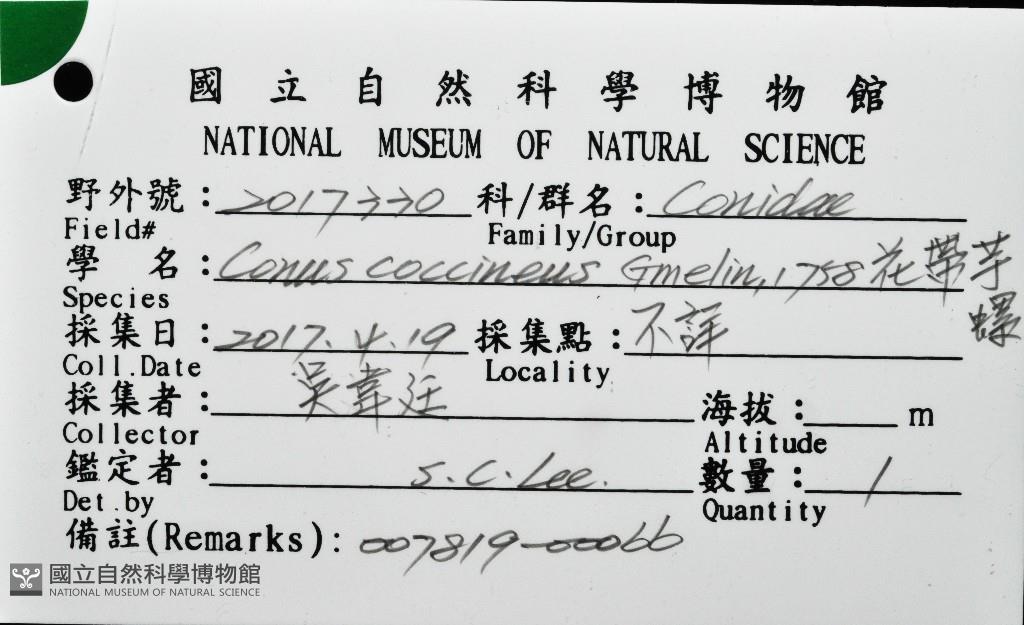 國立自然科學博物館
NATIONAL MUSEUM OF NATURAL SCIENCE
野外號：2017330 科/群名：Conidae
Field# Family/Group
學 名：Conus coccineus Gmelin, 1758 花帶芋螺
Species
採集日：2017.4.19 採集點：不詳
Coll.Date Locality
採集者：吳韋廷 海拔： m
Collector Altitude
鑑定者：S.C.Lee. 數量：1
Det.by Quantity
備註(Remarks)：007819-00066
國立自然科學博物館
NATIONAL MUSEUM OF NATURAL SCIENCE